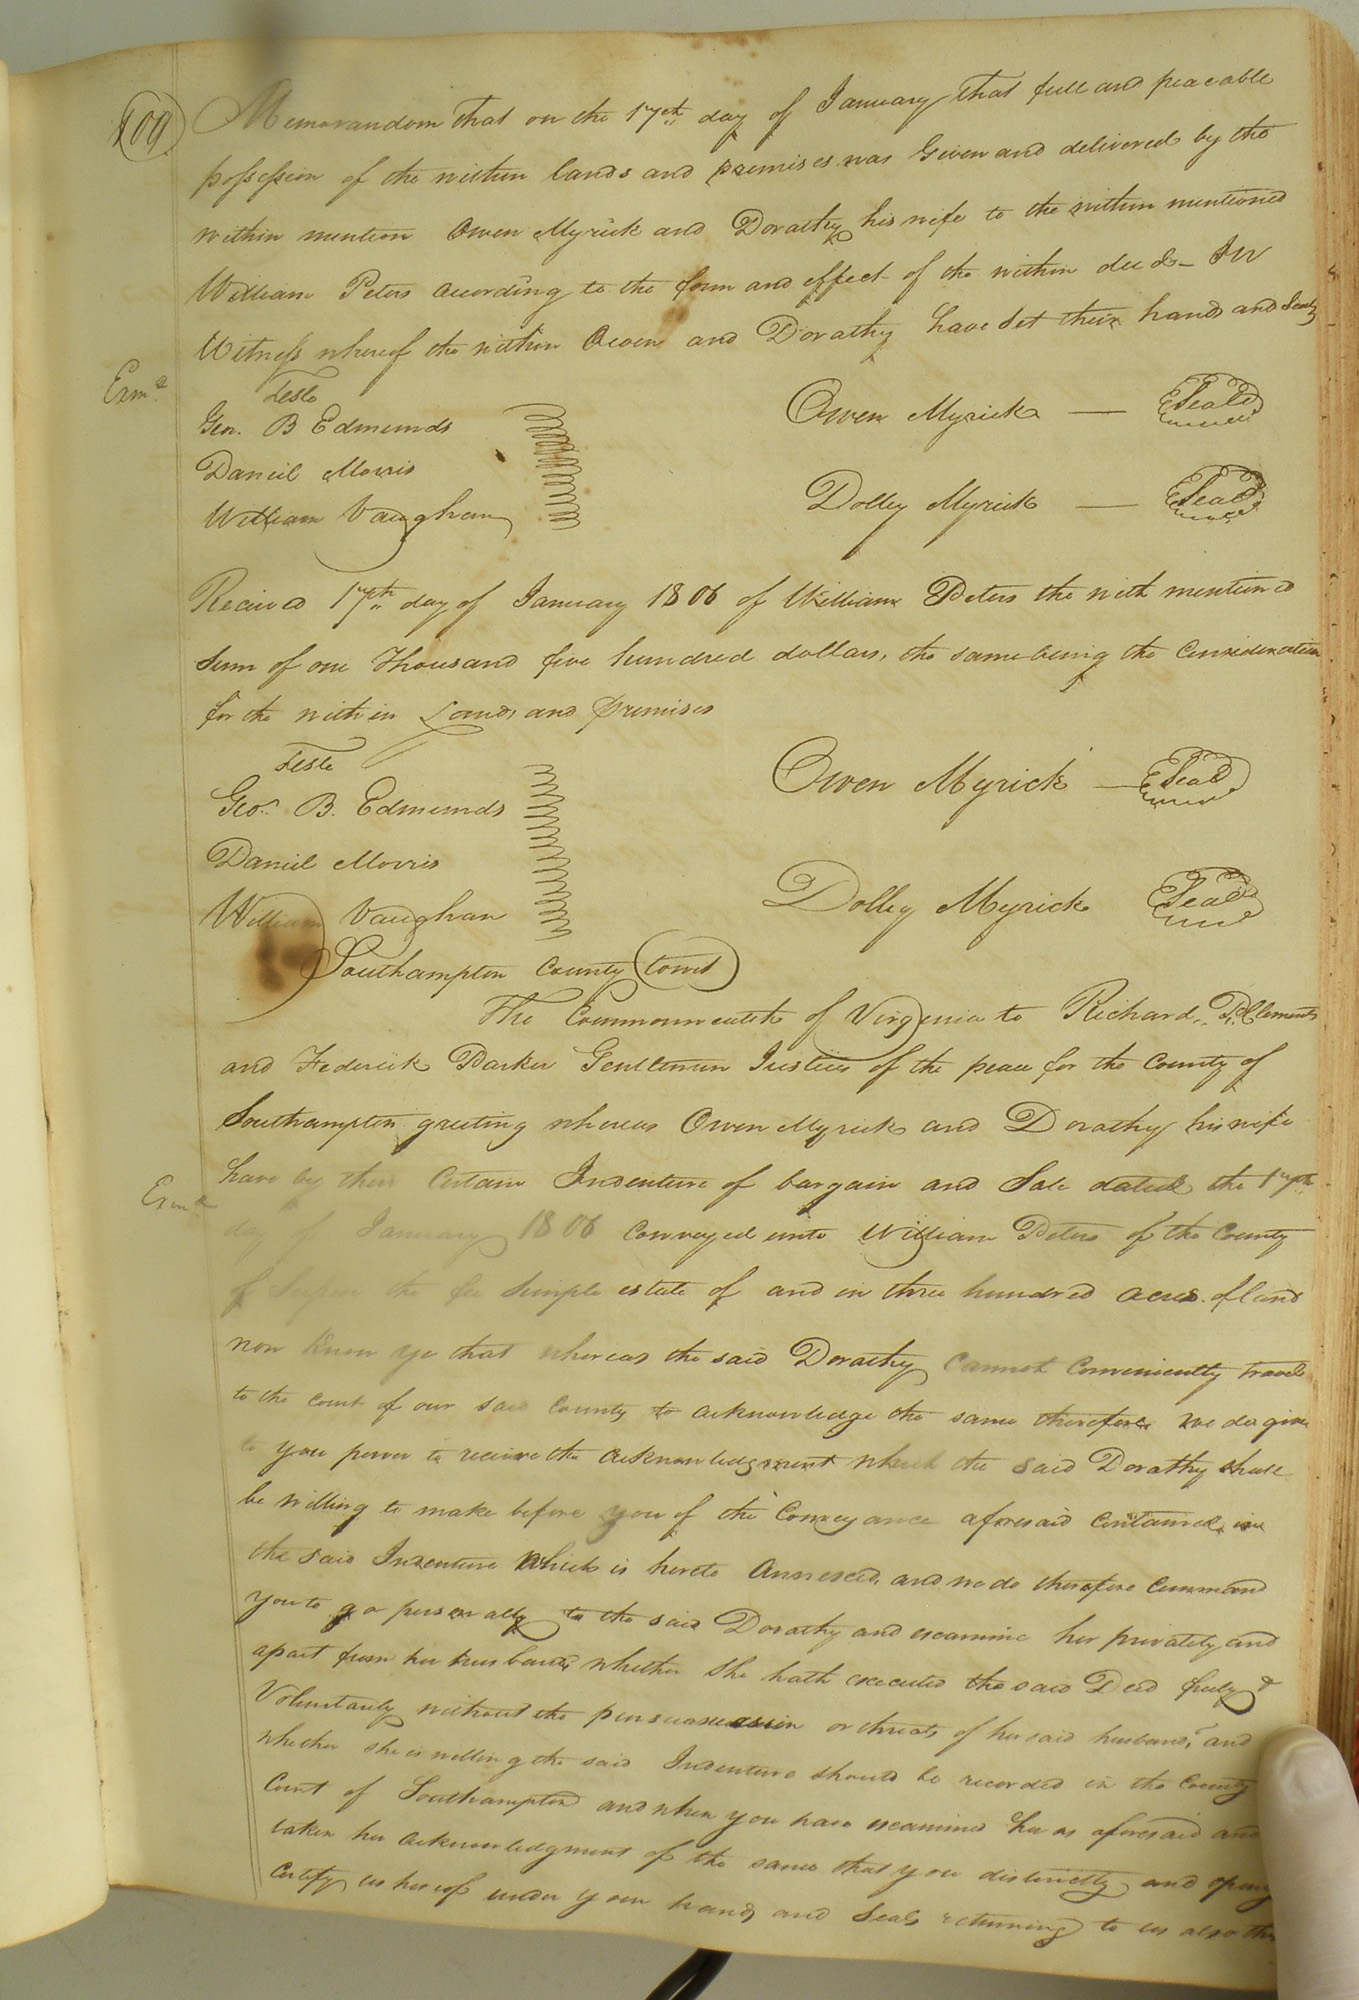 109
Memorandom that on the 17th day of January that full and peacable
possession of the within lands and premises was Given and delivered by the
within mention Owen Myrick and Dorathy his wife to the within mentioned
William Peters according to the form and effect of the within deed - In
Witness whereof the within Owen and Dorathy have set their hands and Seals
Exmd
Teste
Geo. B Edmunds
Owen Myrick — Seal
Daniel Morris
William Vaughan
Dolley Myrick — Seal
Received 17th day of January 1806 of William Peters the with mentioned
Sum of one Thousand five hundred dollars, the same being the Consideration
for the within Lands and premises
Teste
Geo. B. Edmunds
Owen Myrick — Seal
Daniel Morris
William Vaughan
Dolley Myrick Seal
Southampton County (towit)
The Commonwealth of Virginia to Richard P. Clements
and Federick Parker Gentlemen Justices of the peace for the County of
Southampton greeting whereas Owen Myrick and Dorathy his wife
have by their Certain Indenture of bargain and Sale dated the 17th
Exmd
day of January 1806 Conveyed unto William Peters of the County
of the fee Simple estate of and in three hundred acres of land
now Know ye that whereas the said Dorathy cannot Conveniently travel
to the court of our said County to acknowledge the same therefore we do give
to you power to receive the acknowledgment which the said Dorathy shall
be willing to make before you of the Conveyance aforesaid Contained in
the said Indenture which is hereto Annexed, and we do therefore Command
you to go personally to the said Dorathy and examine her privately and
apart from her husband, whether she hath executed the said Deed freely &
Voluntarily without the or threats of her said husband, and
whether she is willing the said Indenture should be recorded in the County
Court of Southampton and when you have examined her as aforesaid and
taken her acknowledgment of the same that you distinctly and openly
Certify us hereof under your hands and Seals returning to us also this